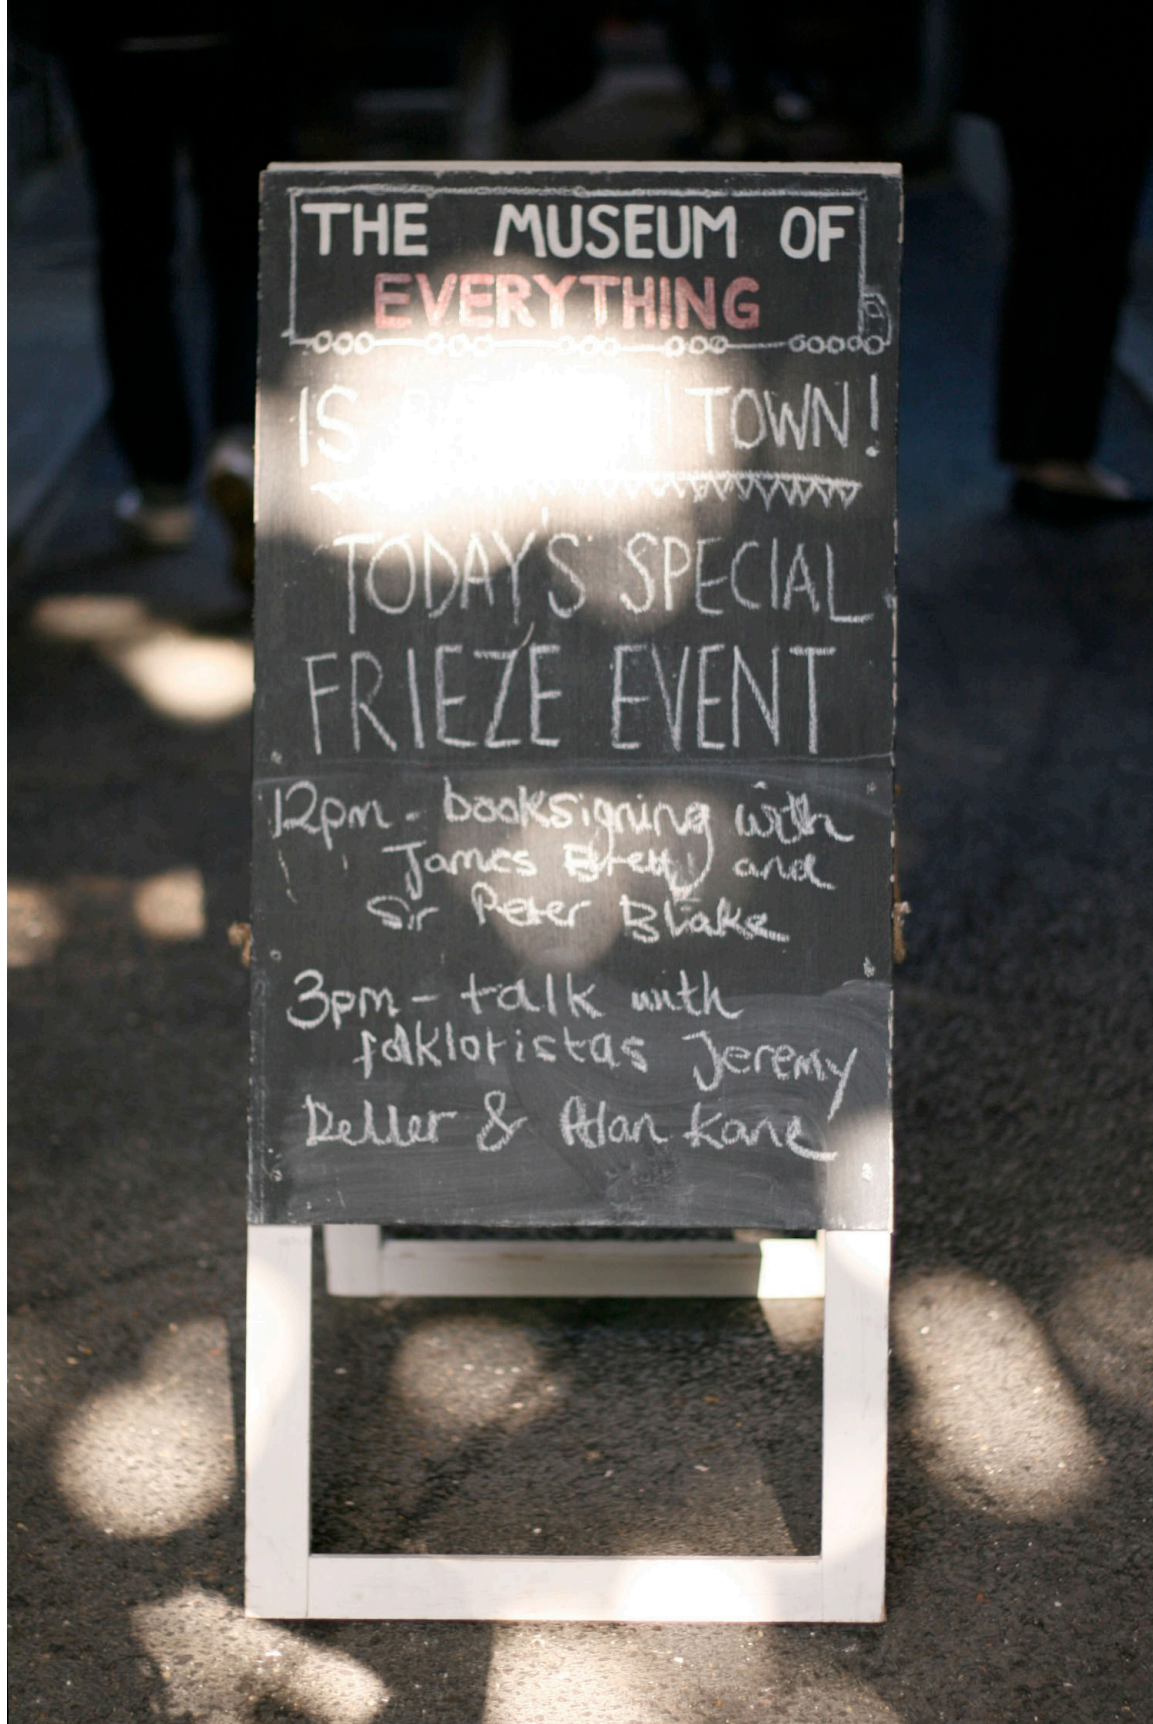 THE MUSEUM OF
EVERYTHING
IS TOWN!
TODAY'S SPECIAL
FRIEZE EVENT
12pm - booksigning with
James Brett and
Sir Peter Blake
3pm - talk with
folkloristas Jeremy
Deller & Alan Kane